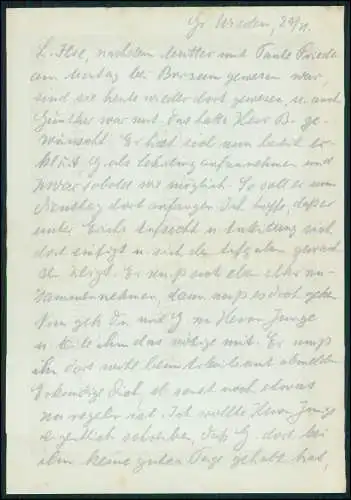 Gr. Wieden, 29/1.
L. Ilse, nachdem Mutter mit Tante Frieda
am Montag bei Borssum gewesen war,
sind sie heute wieder dort gewesen, u. auch
Günther war mit, das hatte Herr B. ge-
wünscht. Er hat sich nun bereit er-
klärt, G. als Lehrling anzunehmen und
zwar sobald wie möglich. So soll er am
Dienstag dort anfangen. Ich hoffe, daß er
unter Aufsicht u. Anleitung sich
dort einfügt u. sich den Aufgaben gewach-
sen zeigt. Er muß sich eben etwas zu-
sammennehmen, dann muß es doch gehen.
Nun geh Du mal G. zu Herrn Junge
u. teile ihm das nötige mit. Er muß
ihn dort wohl beim Arbeitsamt abmelden
Erkundige Dich, ob sonst noch etwas
zu regeln ist. Ich wollte Herrn Junge
eigentlich schreiben, daß G. dort bei
ihm keine guten Tage gehabt hat,